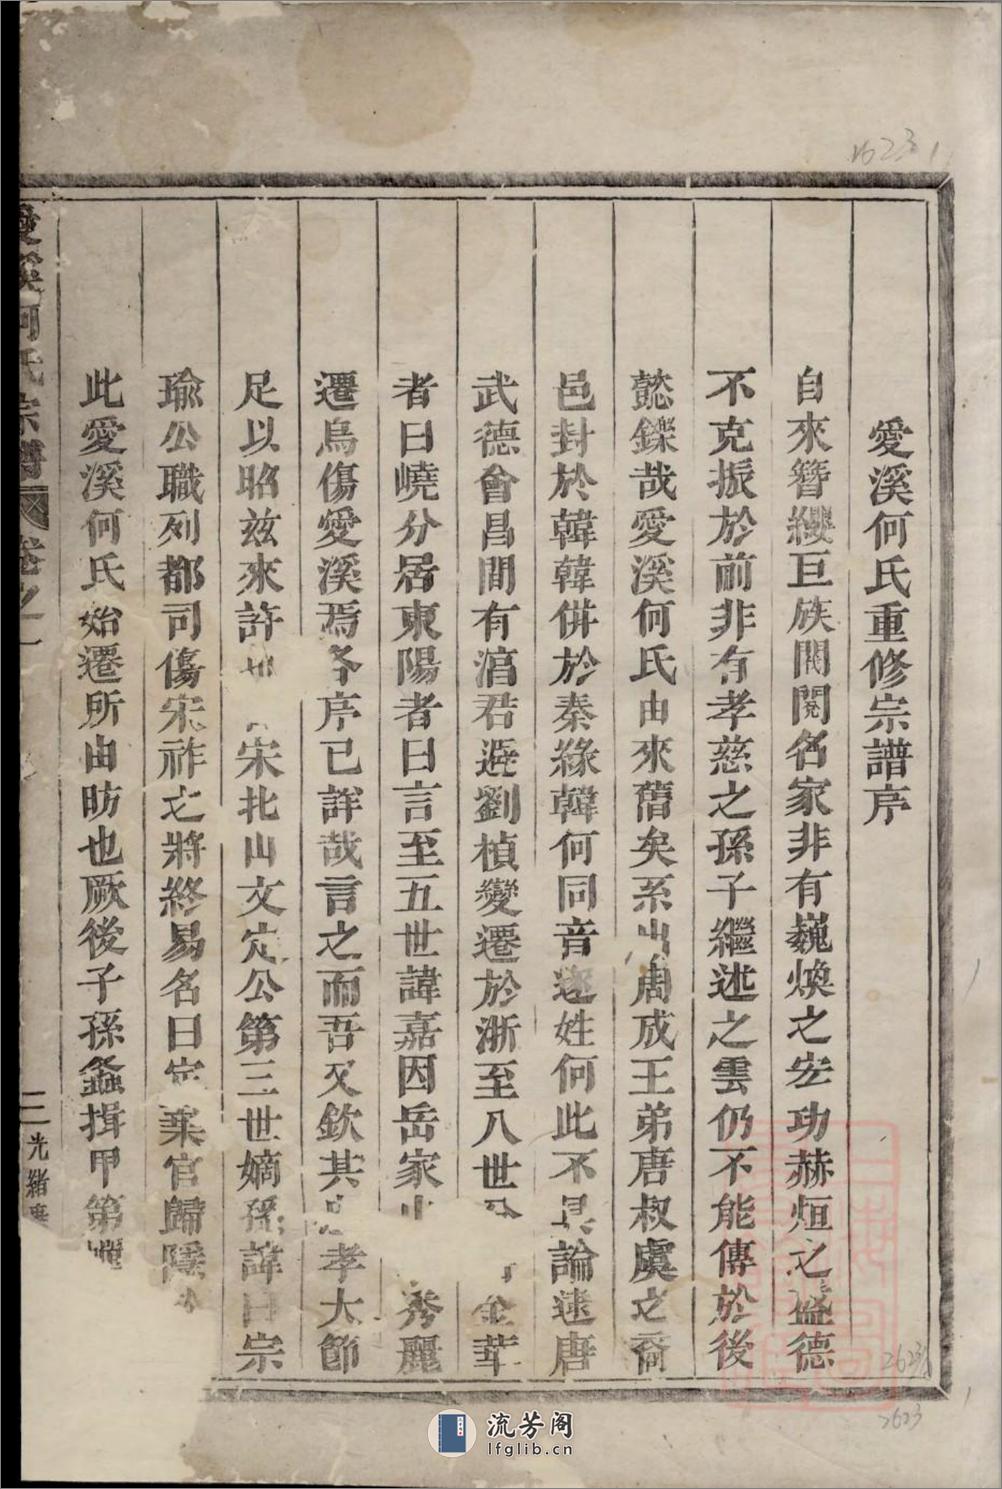 愛溪何氏重修宗譜序
自來簪纓巨族閥閱名家非有巍煥之宏功赫烜之盛德
不克振於前非有孝慈之孫子繼述之雲仍不能傳於後
懿鑠哉愛溪何氏由來舊矣系出周成王弟唐叔虞之裔
邑封於韓韓併於秦緣韓何同音遂姓何此不具論逮唐
武德會昌間有涫君避劉楨變遷於浙至八世 金華
者曰嶢分居東陽者曰言至五世諱嘉因岳家山 秀麗
遷烏傷愛溪焉各序已詳哉言之而吾又欽其忠孝大節
足以昭茲來許 宋北山文定公第三世嫡孫諱曰宗
瑜公職列都司傷宋祚之將終易名曰定棄官歸隱
此愛溪何氏始遷所由昉也厥後子孫螽揖甲第
愛溪何氏宗譜 卷之一
三
光緒
1623
26231
2623
流芳阁
lfglib.cn